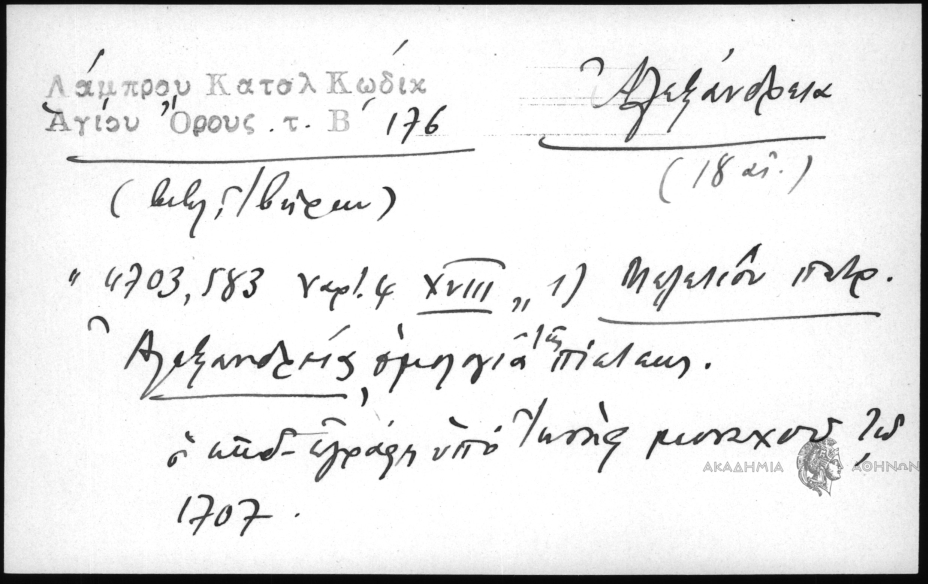 Λάμπρου Καταλ Κωδικ
Ἁγίου Ὄρους. τ. Β 176
Ἀλεξάνδρεια
(18 αἰ.)
" 4703,583 χαρτ. 4 XVIII " 1) Μελετίου πατρ.
Ἀλεξανδρείας, ὁμολογία τῆς πίστεως.
ὁ κῶδ- ἐγράφη ὑπὸ Ἰωσὴφ μοναχοῦ τῷ
1707.
ΑΚΑΔΗΜΙΑ ΑΘΗΝΩΝ